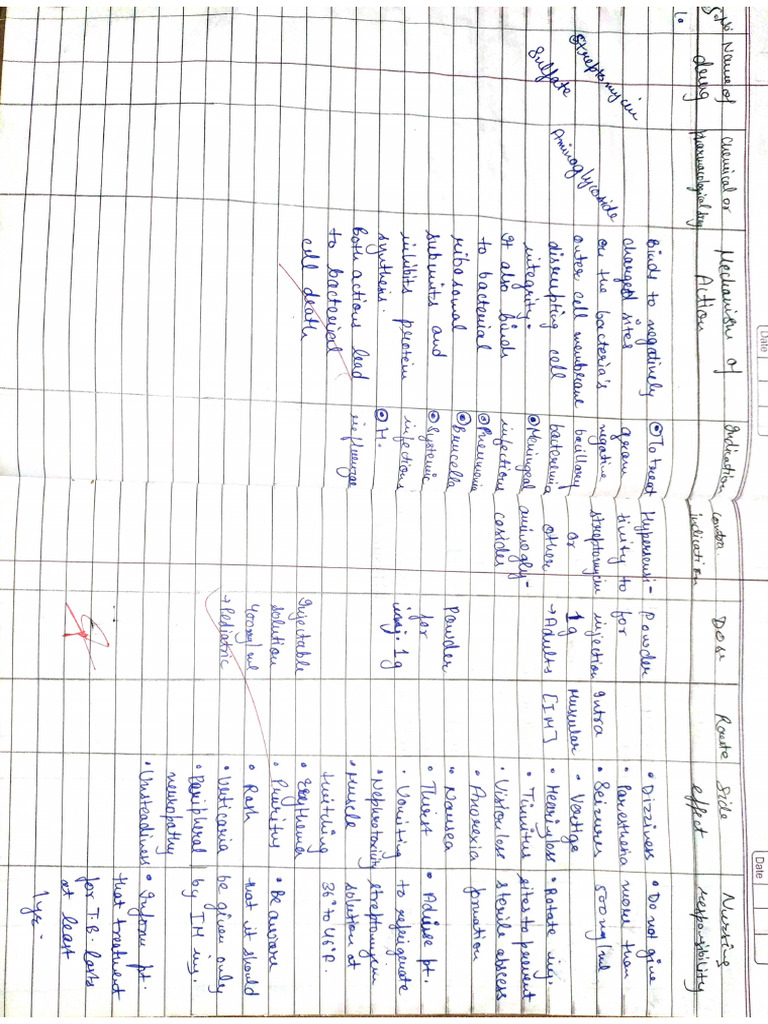 Date
Date
S.No
Name of
drug
Chemical or
Pharmacological
Mechanism of
Action
Indication
Contra
indication
Dose
Route
Side
effect
Nursing
responsibility
1.
Streptomycin
Sulfate
Aminoglycoside
Binds to negatively
charged sites
on the bacteria's
outer cell membrane
disrupting cell
integrity.
It also binds
to bacterial
ribosomal
subunits and
inhibits protein
synthesis.
Both actions lead
to bacterial
cell death
To treat
gram
negative
bacillary
bacteremia
Meningeal
infections
Pneumonia
Brucella
Systemic
infections
H.
influenzae
Hypersensi-
tivity to
streptomycin
or
other
aminogly-
cosides
Powder
for
injection
1g
→ Adults
Powder
for
inj. 1g
Injectable
solution
400mg/ml
→ Pediatric
Intra
Muscular
[IM]
• Dizziness
• Paresthesia
• Seizures
• Vertigo
• Hearing loss
• Tinnitus
• Vision loss
• Anorexia
• Nausea
• Thirst
• Vomiting
• Nephrotoxicity
• Muscle
twitching
• Erythema
• Pruritus
• Rash
• Urticaria
• Peripheral
neuropathy
• Unsteadiness
• Do not give
more than
500mg/ml
• Rotate inj.
sites to prevent
sterile abscess
formation
• Advise pt.
to refrigerate
streptomycin
solution at
36° to 46°F.
• Be aware
that it should
be given only
by IM inj.
• Inform pt.
that treatment
for T.B. lasts
at least
1 yr.